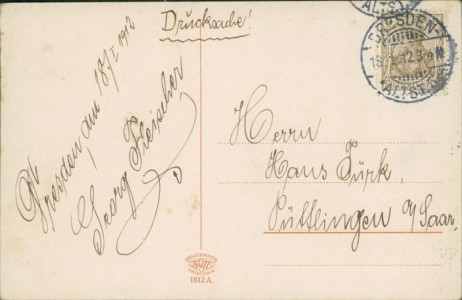 Drucksache!
DRESDEN-
18.1.12.
*ALTST.
Dresden, am 18/I 1912
Georg Fleischer
Herrn
Hans Türk,
Püttlingen a/Saar.
1812 A.